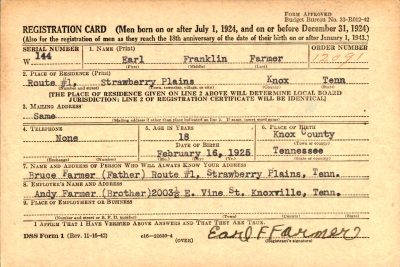 FORM APPROVED
Budget Bureau No. 33-R012-42
REGISTRATION CARD (Men born on or after July 1, 1924, and on or before December 31, 1924)
(Also for the registration of men as they reach the 18th anniversary of the date of their birth on or after January 1, 1943.)
SERIAL NUMBER 1. NAME (Print) ORDER NUMBER
W 144 Earl Franklin Farmer
(First) (Middle) (Last)
2. PLACE OF RESIDENCE (Print)
Route #1, Strawberry Plains Knox Tenn
(Number and street) (Town, township, village, or city) (County) (State)
[THE PLACE OF RESIDENCE GIVEN ON LINE 2 ABOVE WILL DETERMINE LOCAL BOARD
JURISDICTION; LINE 2 OF REGISTRATION CERTIFICATE WILL BE IDENTICAL]
3. MAILING ADDRESS
Same
(Mailing address if other than place indicated on line 2. If same, insert word same)
4. TELEPHONE 5. AGE IN YEARS 6. PLACE OF BIRTH
None 18 Knox County
DATE OF BIRTH (Town or county)
February 16, 1925 Tennessee
(Exchange) (Number) (Mo.) (Day) (Yr.) (State or country)
7. NAME AND ADDRESS OF PERSON WHO WILL ALWAYS KNOW YOUR ADDRESS
Bruce Farmer (Father) Route #1, Strawberry Plains, Tenn.
8. EMPLOYER'S NAME AND ADDRESS
Andy Farmer (Brother) 2003½ E. Vine St. Knoxville, Tenn.
9. PLACE OF EMPLOYMENT OR BUSINESS
(Number and street or R. F. D. number) (Town) (County) (State)
I AFFIRM THAT I HAVE VERIFIED ABOVE ANSWERS AND THAT THEY ARE TRUE.
DSS Form 1 (Rev. 11-16-42) (OVER) Earl F Farmer
(Registrant's signature)